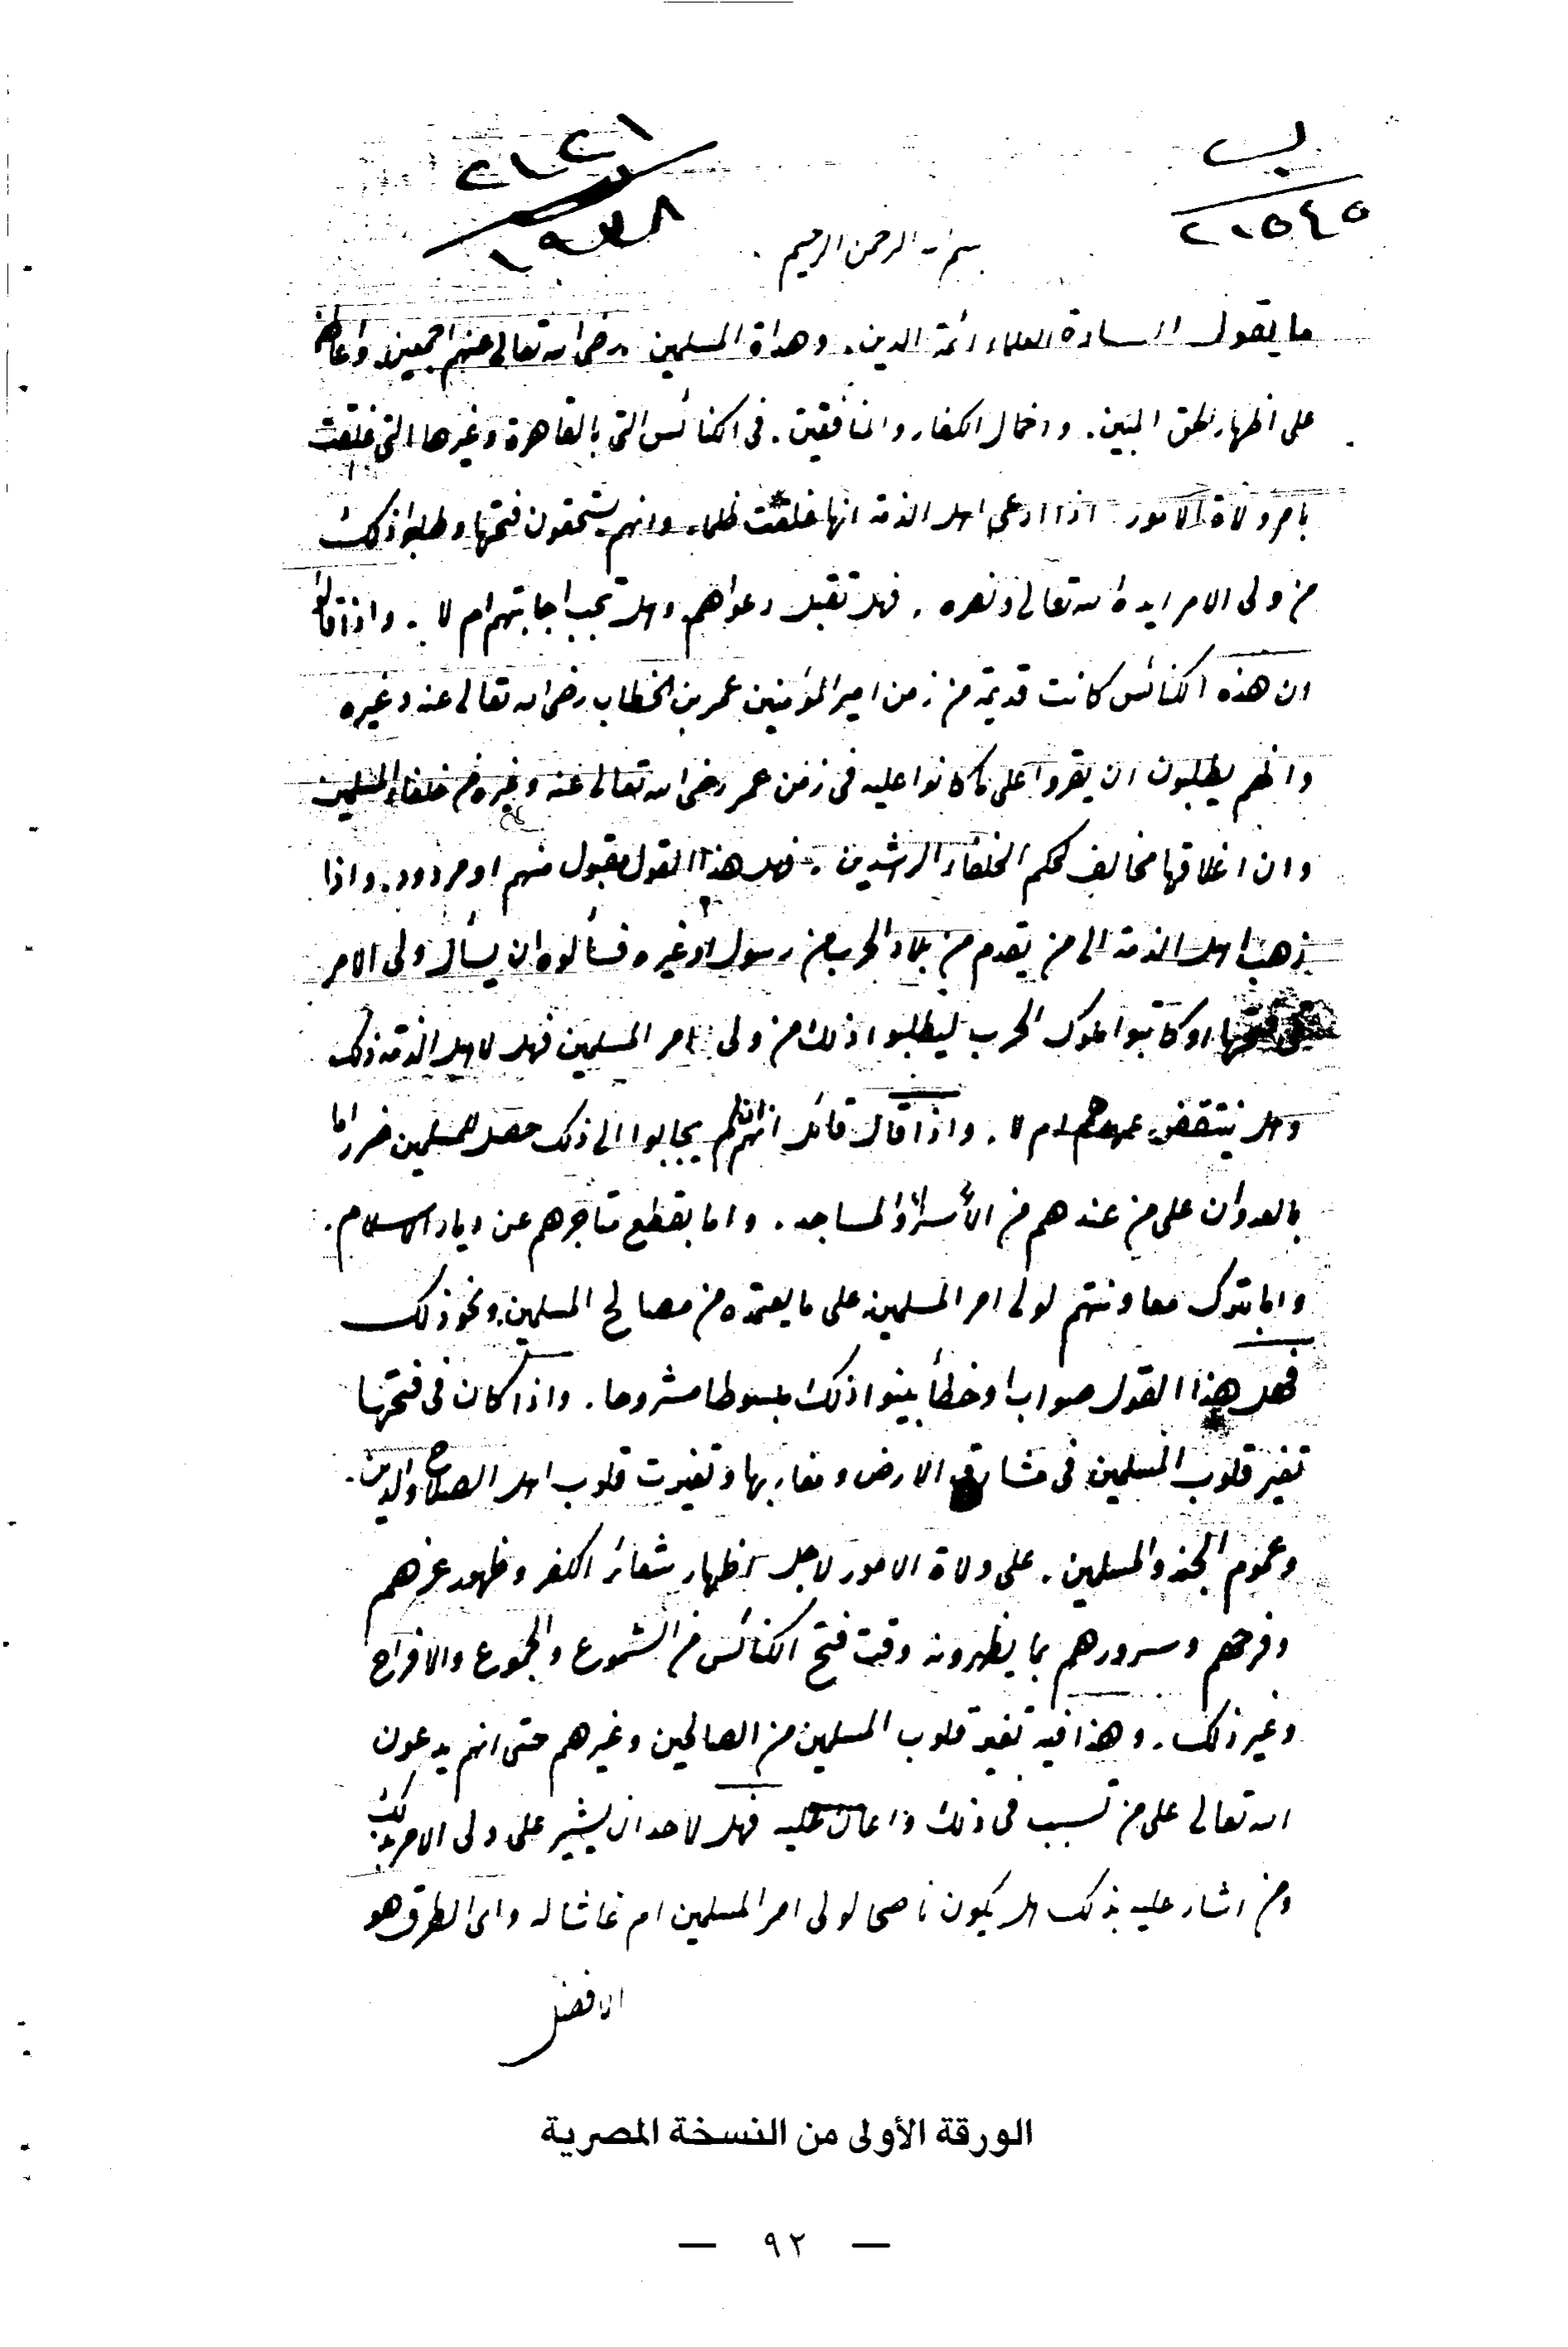 ب
٢٠٥٤٥
بسم الله الرحمن الرحيم
ما يقول السادة العلماء ائمة الدين. وهداة المسلمين رضى الله تعالى عنهم اجمعين واعانهم
على اظهار الحق المبين. واخمال الكفار والمنافقين. فى الكنائس التى بالقاهرة وغيرها التى غلقت
بامر ولاة الامور اذا ادعى اهل الذمة انها غلقت ظلما. وانهم يستحقون فتحها وطلبوا ذلك
من ولى الامر ايده الله تعالى ونصره. فهل تقبل دعواهم وهل تجب اجابتهم ام لا. واذا قالوا
ان هذه الكنائس كانت قديمة من زمن امير المؤمنين عمر بن الخطاب رضى الله تعالى عنه وغيره
وانهم يطلبون ان يقروا على ما كانوا عليه فى زمن عمر رضى الله تعالى عنه وغيره من خلفاء المسلمين
وان اغلاقها مخالف لحكم الخلفاء الراشدين. فهل هذا القول مقبول منهم او مردود. واذا
ذهب اهل الذمة الى من يقدم من بلاد الحرب من رسول او غيره فسألوه ان يسأل ولى الامر
فى فتحها او كاتبوا ملوك الحرب ليطلبوا ذلك من ولى امر المسلمين فهل لاهل الذمة ذلك
وهل ينتقض عهدهم ام لا. واذا قال قائل انهم ان لم يجابوا الى ذلك حصل للمسلمين ضرر اما
بالعدوان على من عندهم من الأسراء والمساجد. واما بقطع متاجرهم عن ديار الاسلام.
واما بترك معاونتهم لولى امر المسلمين على ما يعتمده من مصالح المسلمين ونحو ذلك
فهل هذا القول صواب او خطأ بينوا ذلك مبسوطا مشروحا. واذا كان فى فتحها
تغير قلوب المسلمين فى مشارق الارض ومغاربها وتغيرت قلوب اهل الصلاح والدين.
وعموم الجند والمسلمين. على ولاة الامور لاجل اظهار شعائر الكفر وظهور عزهم
وفرحهم وسرورهم بما يظهرونه وقت فتح الكنائس من الشموع والجموع والافراح
وغير ذلك. وهذا فيه تغير قلوب المسلمين من الصالحين وغيرهم حتى انهم يدعون
الله تعالى على من تسبب فى ذلك واعان عليه فهل لاحد ان يشير على ولى الامر بذلك
ومن اشار عليه بذلك هل يكون ناصحا لولى امر المسلمين ام غاشا له واى الطرق هو
الافضل
الورقة الأولى من النسخة المصرية
— ٩٢ —